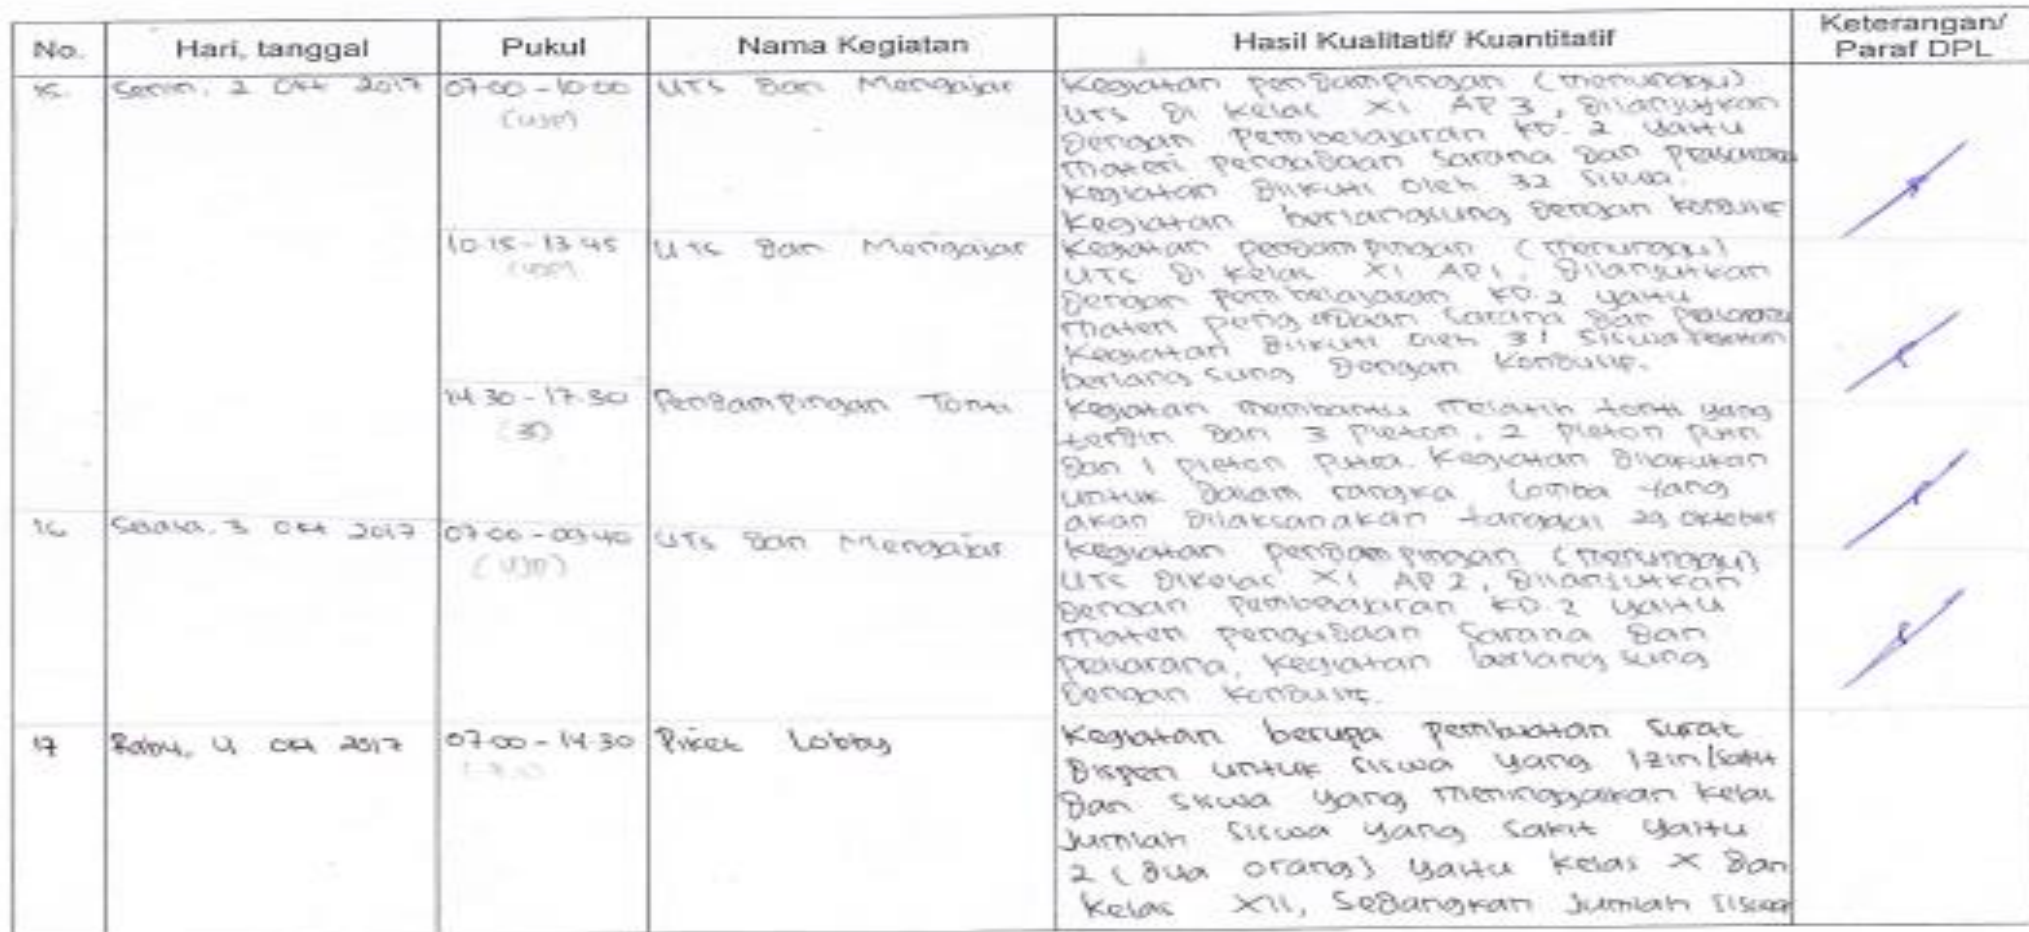 No. Hari, tanggal Pukul Nama Kegiatan Hasil Kualitatif/ Kuantitatif Keterangan/ Paraf DPL
15. Senin, 2 Okt 2017 07.00 - 10.00 UTS dan Mengajar Kegiatan pendampingan (menunggu)
(4JP) UTS di kelas XI AP 3, dilanjutkan
dengan pembelajaran KD.2 yaitu
materi pengadaan sarana dan prasarana
Kegiatan diikuti oleh 32 siswa.
Kegiatan berlangsung dengan kondusif
10.15 - 13.45 UTS dan Mengajar Kegiatan pendampingan (menunggu)
UTS di kelas XI AP1, dilanjutkan
dengan pembelajaran KD.2 yaitu
materi pengadaan sarana dan prasarana
Kegiatan diikuti oleh 31 siswa kegiatan
berlangsung dengan kondusif.
14.30 - 17.30 Pendampingan Tonti Kegiatan membantu melatih tonti yang
(3) terdiri dari 3 pleton, 2 pleton putri
dan 1 pleton putra. Kegiatan dilakukan
untuk dalam rangka lomba yang
akan dilaksanakan tanggal 29 Oktober
16 Selasa, 3 Okt 2017 07.00 - 09.40 UTS dan Mengajar Kegiatan pendampingan (menunggu)
(4JP) UTS dikelas XI AP 2, dilanjutkan
dengan pembelajaran KD.2 yaitu
materi pengadaan sarana dan
prasarana, kegiatan berlangsung
dengan kondusif.
17 Rabu, 4 Okt 2017 07.00 - 14.30 Piket Lobby Kegiatan berupa pembuatan surat
dispen untuk siswa yang izin/sakit
dan siswa yang meninggalkan kelas
jumlah siswa yang sakit yaitu
2 (dua orang) yaitu kelas X dan
kelas XII, sedangkan jumlah siswa